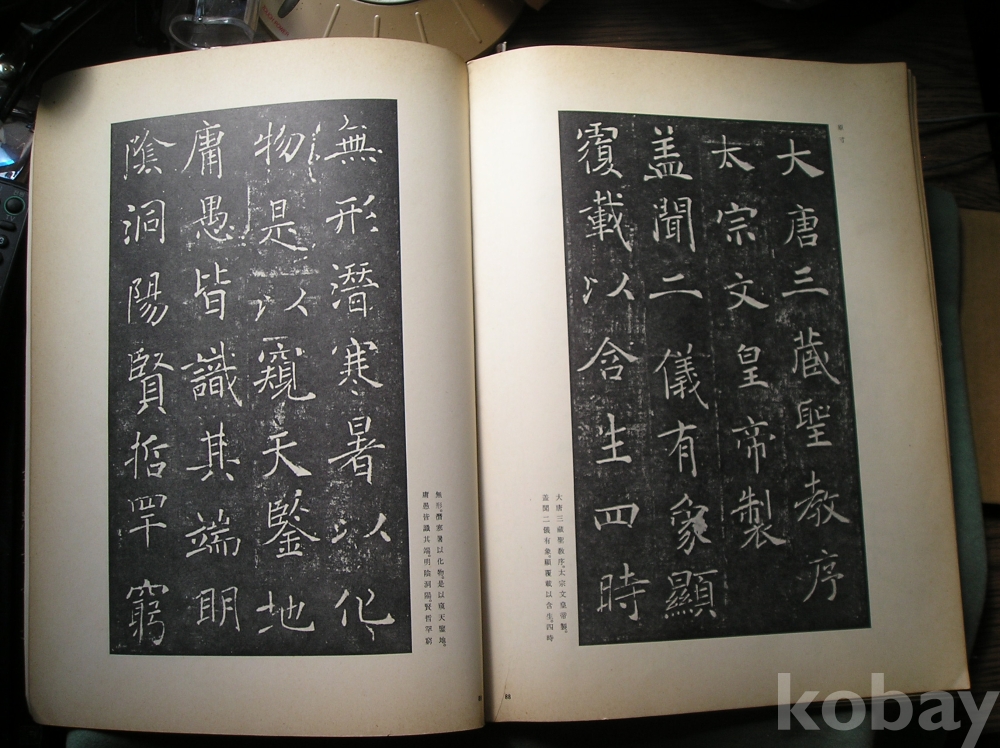 大唐三藏聖教序
太宗文皇帝製
盖聞二儀有象顯
覆載以含生四時
大唐三藏聖教序。太宗文皇帝製。
盖聞二儀有象。顯覆載以含生。四時
88
無形潛寒暑以化
物是以窺天鑒地
庸愚皆識其端明
陰洞陽賢哲罕窮
無形。潛寒暑以化物。是以窺天鑒地。
庸愚皆識其端。明陰洞陽。賢哲罕窮
kobay